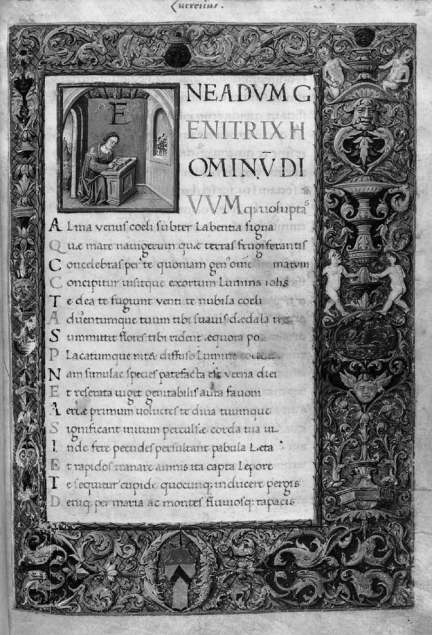 Lucretius.
E
NEADVM G
ENITRIX H
OMINŪ DI
VVM q; uolupta
A lma venus coeli subter Labentia signa
Q uæ mare nauigerum quæ terras frugiferantis
C oncelebras per te quoniam gen' omē matum
C oncipitur uisitque exortum Lumina solis
T e dea te fugiunt venti te nubila coeli
A duentumque tuum tibi suauis dædala
S ummittit flores tibi rident æquora po
P Lacatumque nitet diffuso Lumine
N am simulac species patefacta est verna diei
E t reserata uiget genitabilis aura fauoni
A eriæ primum volucres te diua tuumque
S ignificant initum perculsæ corda tua ui
I nde fere pecudes persultant pabula Læta
E t rapidos tranant amnis ita capta Lepore
T e sequitur cupide quocunq; inducere pergis
D eniq; per maria ac montes fluuiosq; rapacis